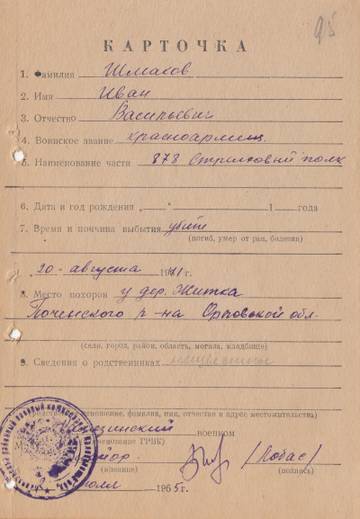 95
КАРТОЧКА
1. Фамилия Шмаков
2. Имя Иван
3. Отчество Васильевич
4. Воинское звание красноармеец
5. Наименование части 878 стрелковый полк
6. Дата и год рождения „ “ 1 года
7. Время и причина выбытия убит
(погиб, умер от ран, болезни)
20 - августа 1941г.
8. Место похорон у дер. Житка
Почепского р-на Орловской обл.
(село, город, район, область, могила, кладбище)
9. Сведения о родственниках неизвестны
фамилия, имя, отчество и адрес местожительства)
военком
ГРВК)
(Лобас)
(звание) (подпись)
1965г.